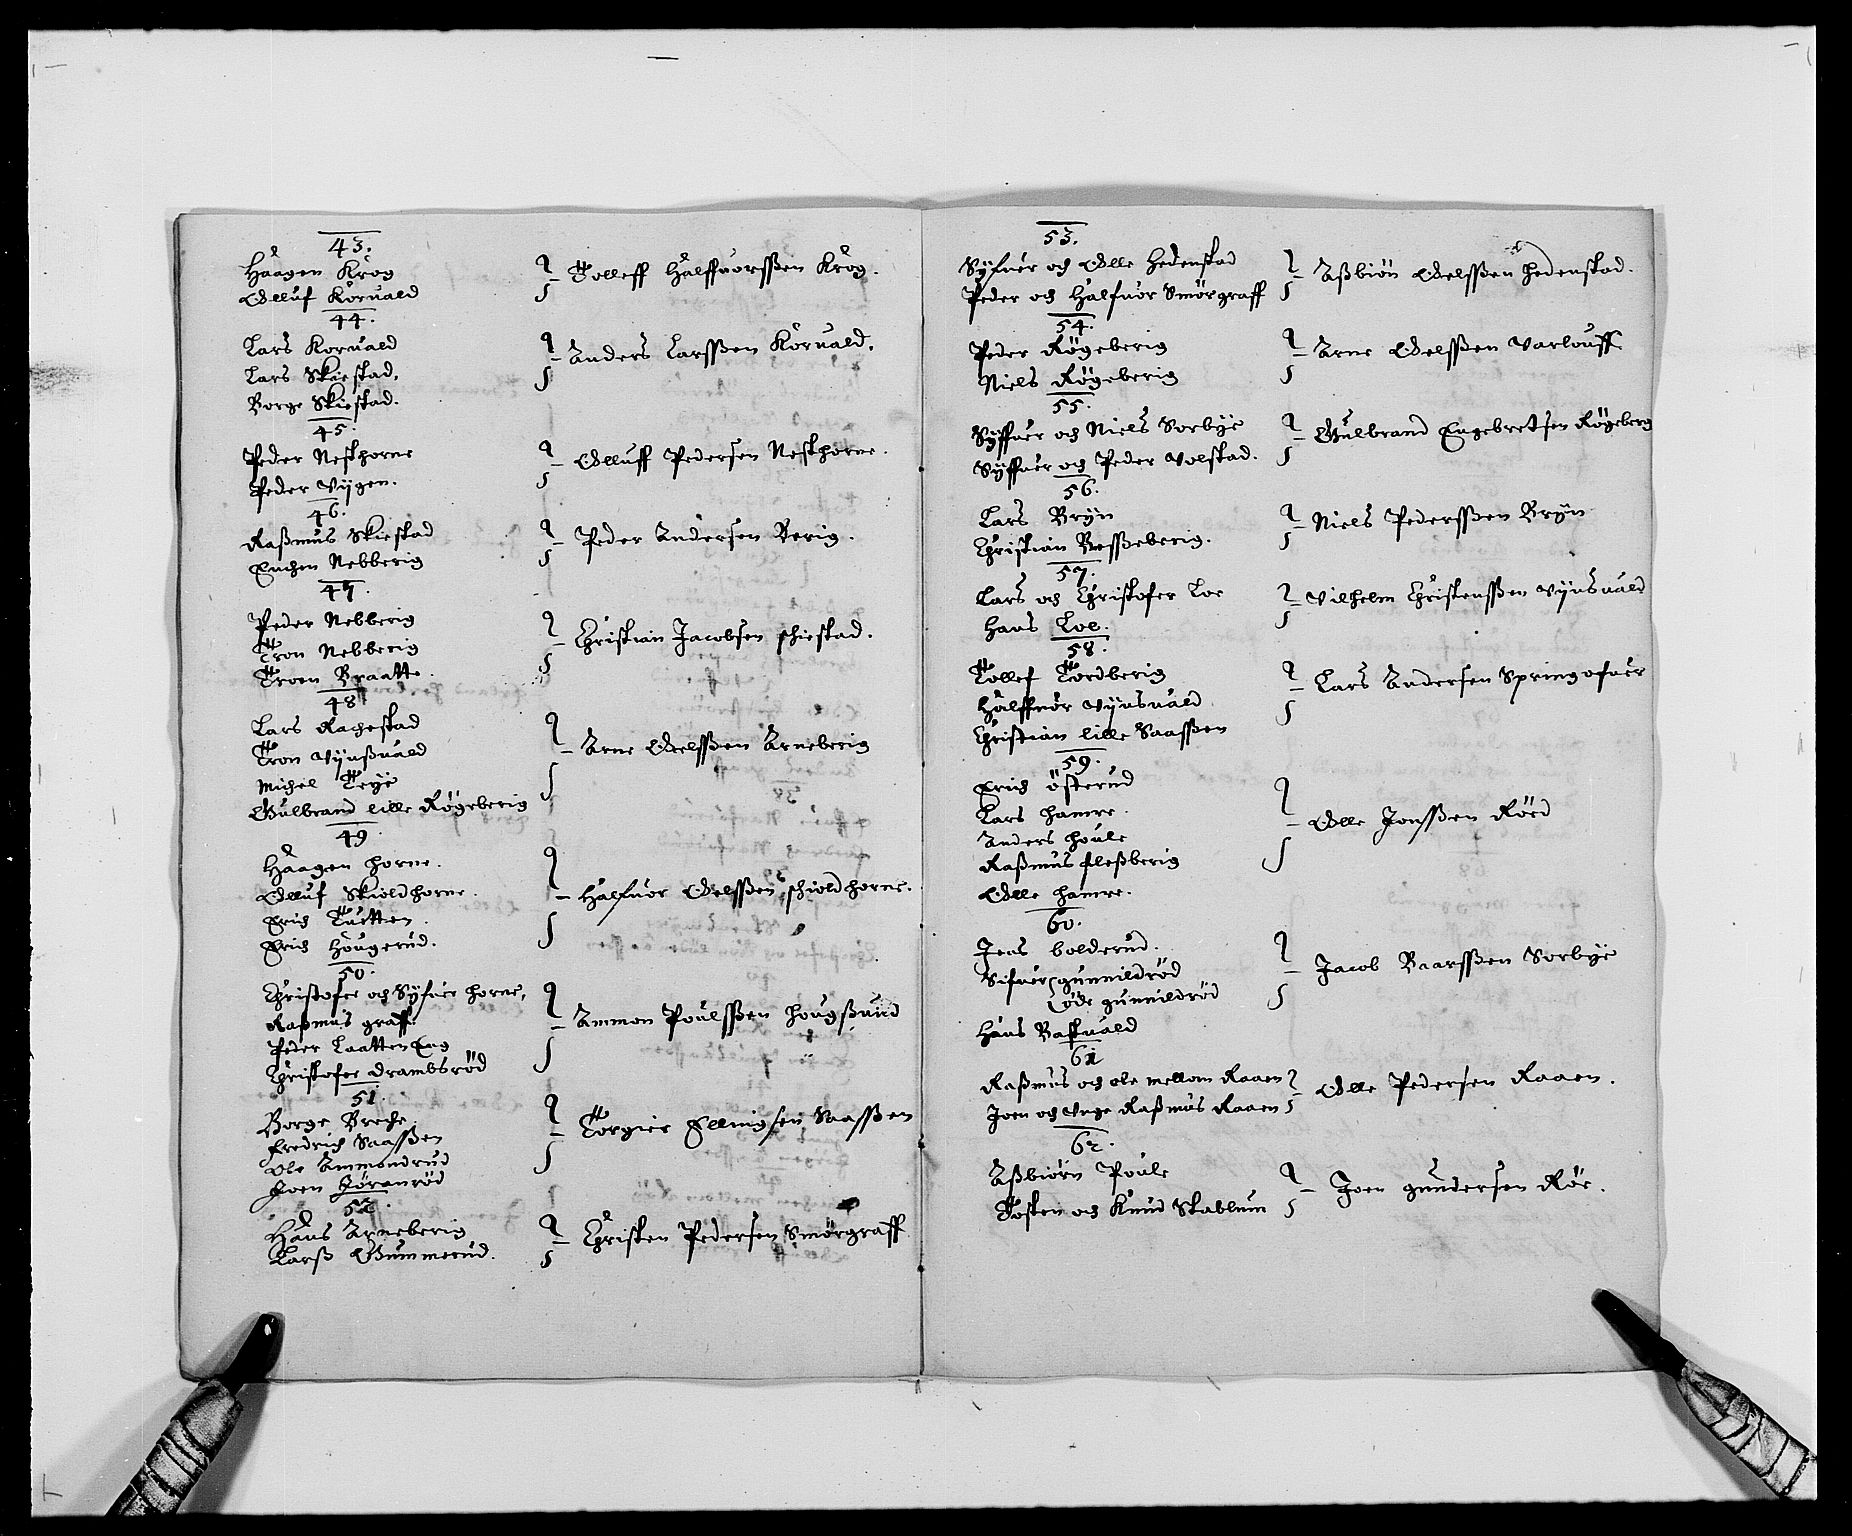 43.
Haagen Krog
Olluf Koruald
Tolleff Halffuorssøen Krog.
44.
Lars Koruald
Lars Skiestad.
Borge Skiestad.
Anders Larssen Koruald.
45.
Peder Neskhorne
Peder Vÿgen.
Olluff Pedersen Neskhorne.
46.
Rasmus Skiestad
Nebberig
Peder Andersen Berig.
47.
Peder Nebberig
Tron Nebberig
Troen Braatte.
Christian Jacobsen schiestad.
48
Lars Rachestad
Tron Vÿnsuald
Michel Teÿe
Gulbrand lille Røgeberig
Arne Oelssen Arneberig
49
Haagen horne.
Olluf Skioldhorne.
Erich Tuetten.
Erich Hougerud.
Halfuor Oelssen schioldhorne.
50.
Christofer och Sÿfuer horne,
Rasmus graff.
Peder Laatten Eng
Christofer drambsrød
Ammon Poulssen hougsuud
51.
Borge Breche
Fredrich Saassen
Ole Ammondrud
Joen Jøranrød
Torgier Ellingsen Saassen
52.
Hans Arneberig
Larss Gummerud.
Christen Pedersen Smørgraff
53.
Sÿfuer och Olle Hedenstad
Peder och Halfuor Smørgraff
Asbiøn Oelssen hedenstad.
54.
Peder Røgeberig
Niels Røgeberig
Arne Oelssen Varlouff.
55.
Sÿffuer och Niels Sorbÿe
Sÿffuer och Peder Volstad.
Gulbrand Engebretsen Røgeberg
56.
Lars Brÿn
Christian Besseberig.
Niels Pederssen Brÿn
57.
Lars och Christofer Loe
Hans Loe.
Vilhelm Christenssen Vÿnsuald
58.
Tollef Tordberig
Halffuor Vÿnsuald
Christian lille Saassen
Lars Andersen Springofuer
59.
Erich østerud
Lars hamre.
Anders houle
Rasmus flesberig
Olle hamre.
Olle Jonssen Røed
60.
Jens bolderud.
Sifuer gunnildrød
ode gunnildrød
Hans Baskuald
Jacob Baarssen Sorbÿe
61
Rasmus och ole mellom Raaen
Joen och Unge Rasmus Raaen
Olle Pedersen Raaen.
62.
Asbiørn Poule
Tosten och Knud Stablum
Joen gundersen Røe.